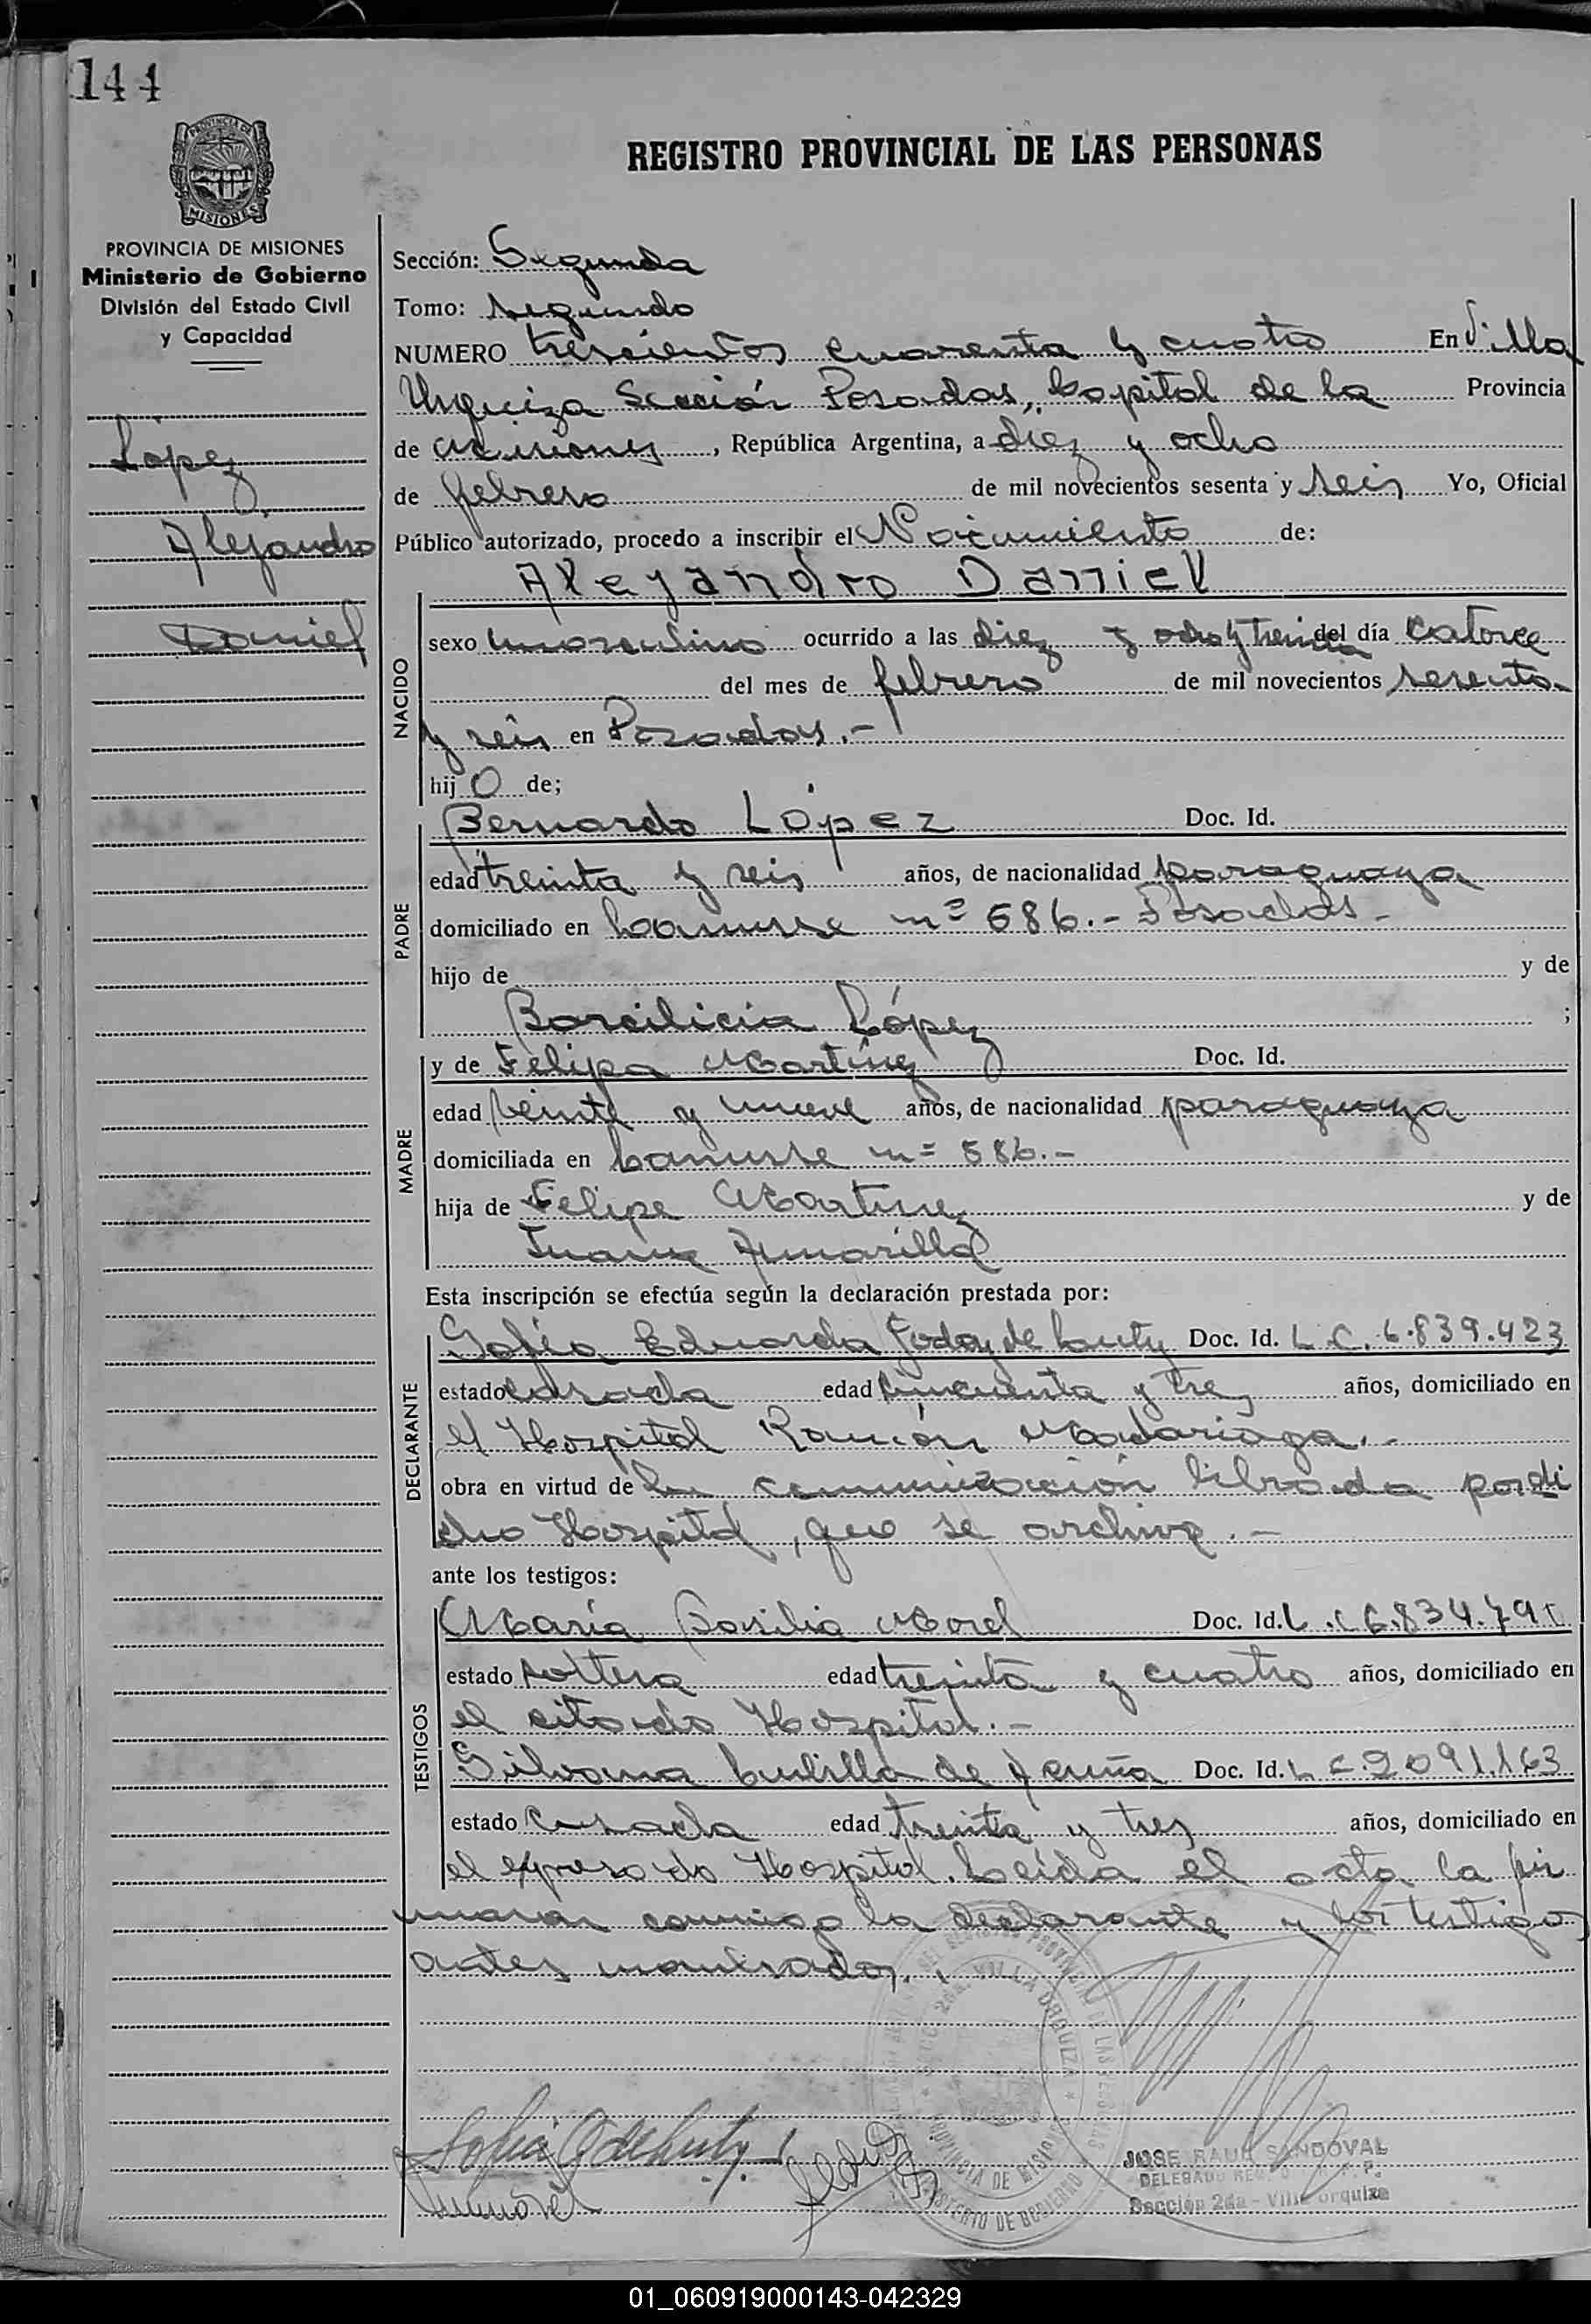 144
PROVINCIA DE MISIONES
PROVINCIA DE MISIONES
Ministerio de Gobierno
División del Estado Civil
y Capacidad
López
Alejandro
Daniel
REGISTRO PROVINCIAL DE LAS PERSONAS
Sección: Segunda
Tomo: segundo
NUMERO trescientos cuarenta y cuatro En Villa
Urquiza Sección Posadas, Capital de la Provincia
de Misiones, República Argentina, a diez y ocho
de febrero de mil novecientos sesenta y seis Yo, Oficial
Público autorizado, procedo a inscribir el Nacimiento de:
Alejandro Daniel
NACIDO
sexo masculino ocurrido a las diez y ocho y treinta del día catorce
del mes de febrero de mil novecientos sesenta
y seis en Posadas.-
hijo de;
PADRE
Bernardo López Doc. Id.
edad treinta y seis años, de nacionalidad paraguaya
domiciliado en nº 686.- Posadas-
hijo de y de
Barcilicia López ;
MADRE
y de Felipa Martínez Doc. Id.
edad veinte y nueve años, de nacionalidad paraguaya
domiciliada en nº 686.-
hija de Felipe Martinez y de
Juana Amarilla
Esta inscripción se efectúa según la declaración prestada por:
DECLARANTE
Sofía Eduarda Godoy de Doc. Id. L.C. 6.839.423
estado casada edad cincuenta y tres años, domiciliado en
el Hospital Ramón Madariaga.-
obra en virtud de la comunicación librada por di
cho Hospital, que se archiva.-
ante los testigos:
TESTIGOS
María Basilia Morel Doc. Id. L.C. 6.834.790
estado soltera edad treinta y cuatro años, domiciliado en
el citado Hospital.-
Silvana de Acuña Doc. Id. L C 2091.163
estado casada edad treinta y tres años, domiciliado en
el expresado Hospital. Leída el acta la fir
maran conmigo la declarante y los testigos
antes nombrados.
VILLA URQUIZA
PROVINCIA DE MISIONES
MINISTERIO DE GOBIERNO
JOSE RAUL SANDOVAL
DELEGADO
Sección 2da - Villa Urquiza
01_060919000143-042329